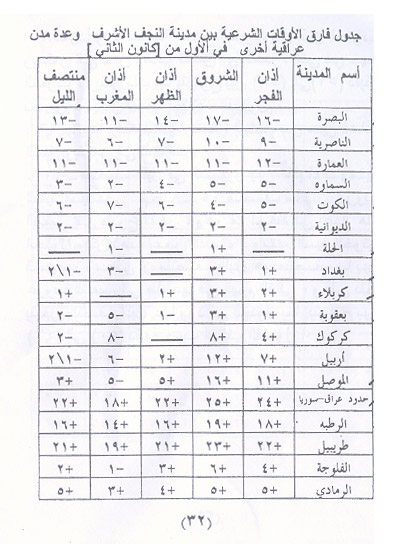 جدول فارق الأوقات الشرعية بين مدينة النجف الأشرف وعدة مدن
عراقية أخرى في الأول من [كانون الثاني]
أسم المدينة | أذان الفجر | الشروق | أذان الظهر | أذان المغرب | منتصف الليل
البصرة | ١٦− | ١٧− | ١٤− | ١١− | ١٣−
الناصرية | ٩− | ١٠− | ٧− | ٦− | ٧−
العمارة | ١٢− | ١١− | ١١− | ١١− | ١١−
السماوه | ٥− | ٥− | ٤− | ٢− | ٣−
الكوت | ٥− | ٤− | ٦− | ٧− | ٦−
الديوانية | ٢− | ٢− | ٢− | ٢− | ٢−
الحلة | —— | ١+ | —— | ١− | ——
بغداد | ١+ | ٣+ | —— | ٣− | ٢\١−
كربلاء | ٢+ | ٣+ | ١+ | —— | ١+
بعقوبة | ١+ | ٣+ | ١− | ٥− | ٢−
كركوك | ٤+ | ٨+ | —— | ٨− | ٢−
أربيل | ٧+ | ١٢+ | ٢+ | ٦− | ٢\١−
الموصل | ١١+ | ١٦+ | ٥+ | ٥− | ٣+
حدود عراق–سوريا | ٢٤+ | ٢٥+ | ٢٢+ | ١٨+ | ٢٢+
الرطبه | ١٨+ | ١٩+ | ١٦+ | ١٤+ | ١٦+
طريبيل | ٢٢+ | ٢٣+ | ٢١+ | ١٩+ | ٢١+
الفلوجة | ٤+ | ٦+ | ٣+ | ١− | ٢+
الرمادي | ٥+ | ٥+ | ٤+ | ٣+ | ٥+
(٣٢)